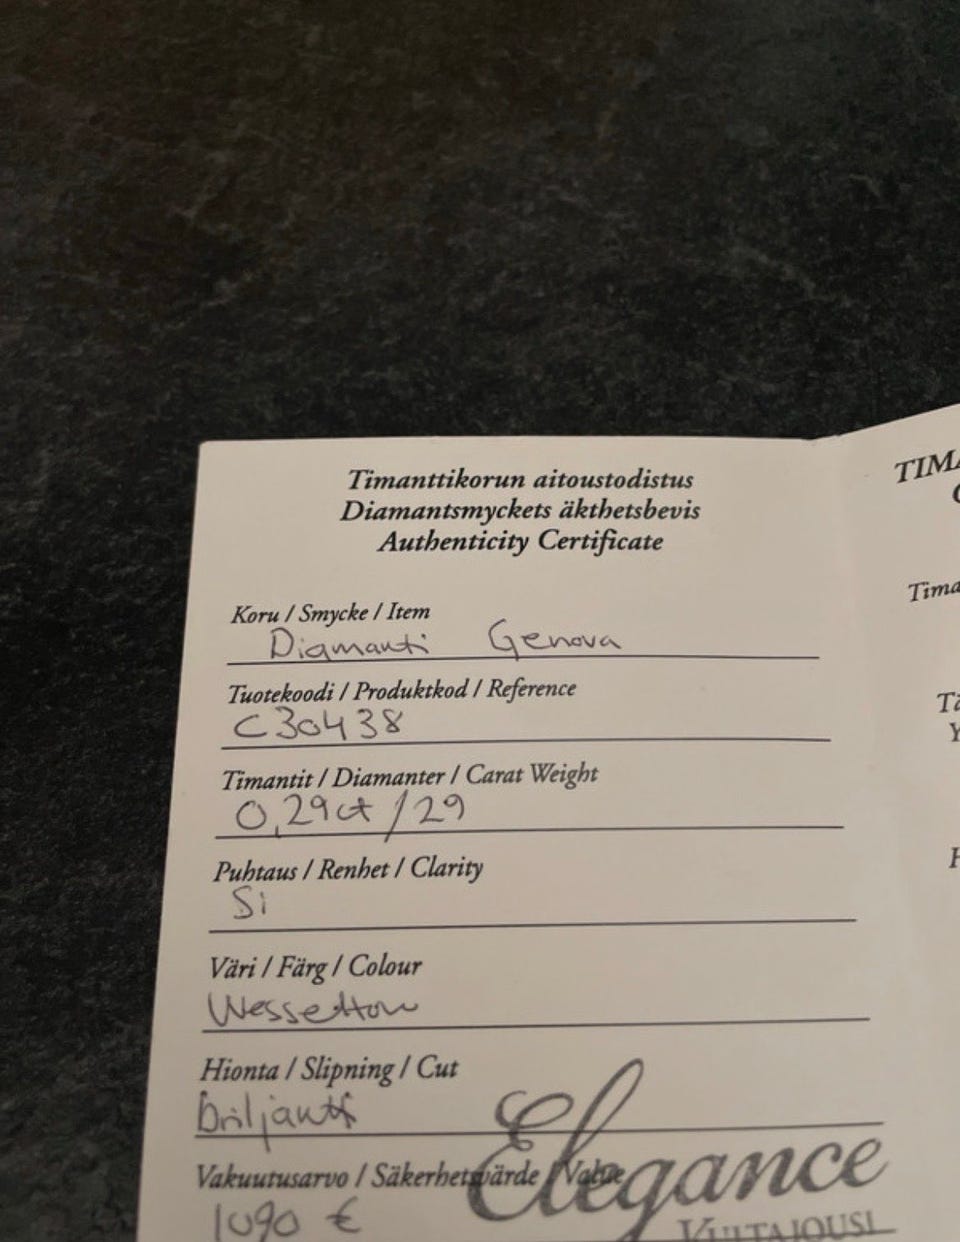 Timanttikorun aitoustodistus
Diamantsmyckets äkthetsbevis
Authenticity Certificate
Koru / Smycke / Item
Diamanti Genova
Tuotekoodi / Produktkod / Reference
C30438
Timantit / Diamanter / Carat Weight
0,29ct / 29
Puhtaus / Renhet / Clarity
Si
Väri / Färg / Colour
Wesselton
Hionta / Slipning / Cut
briljantti
Vakuutusarvo / Säkerhetsvärde / Value
1090 €
Elegance
KULTAJOUSI
TIMA
Tima